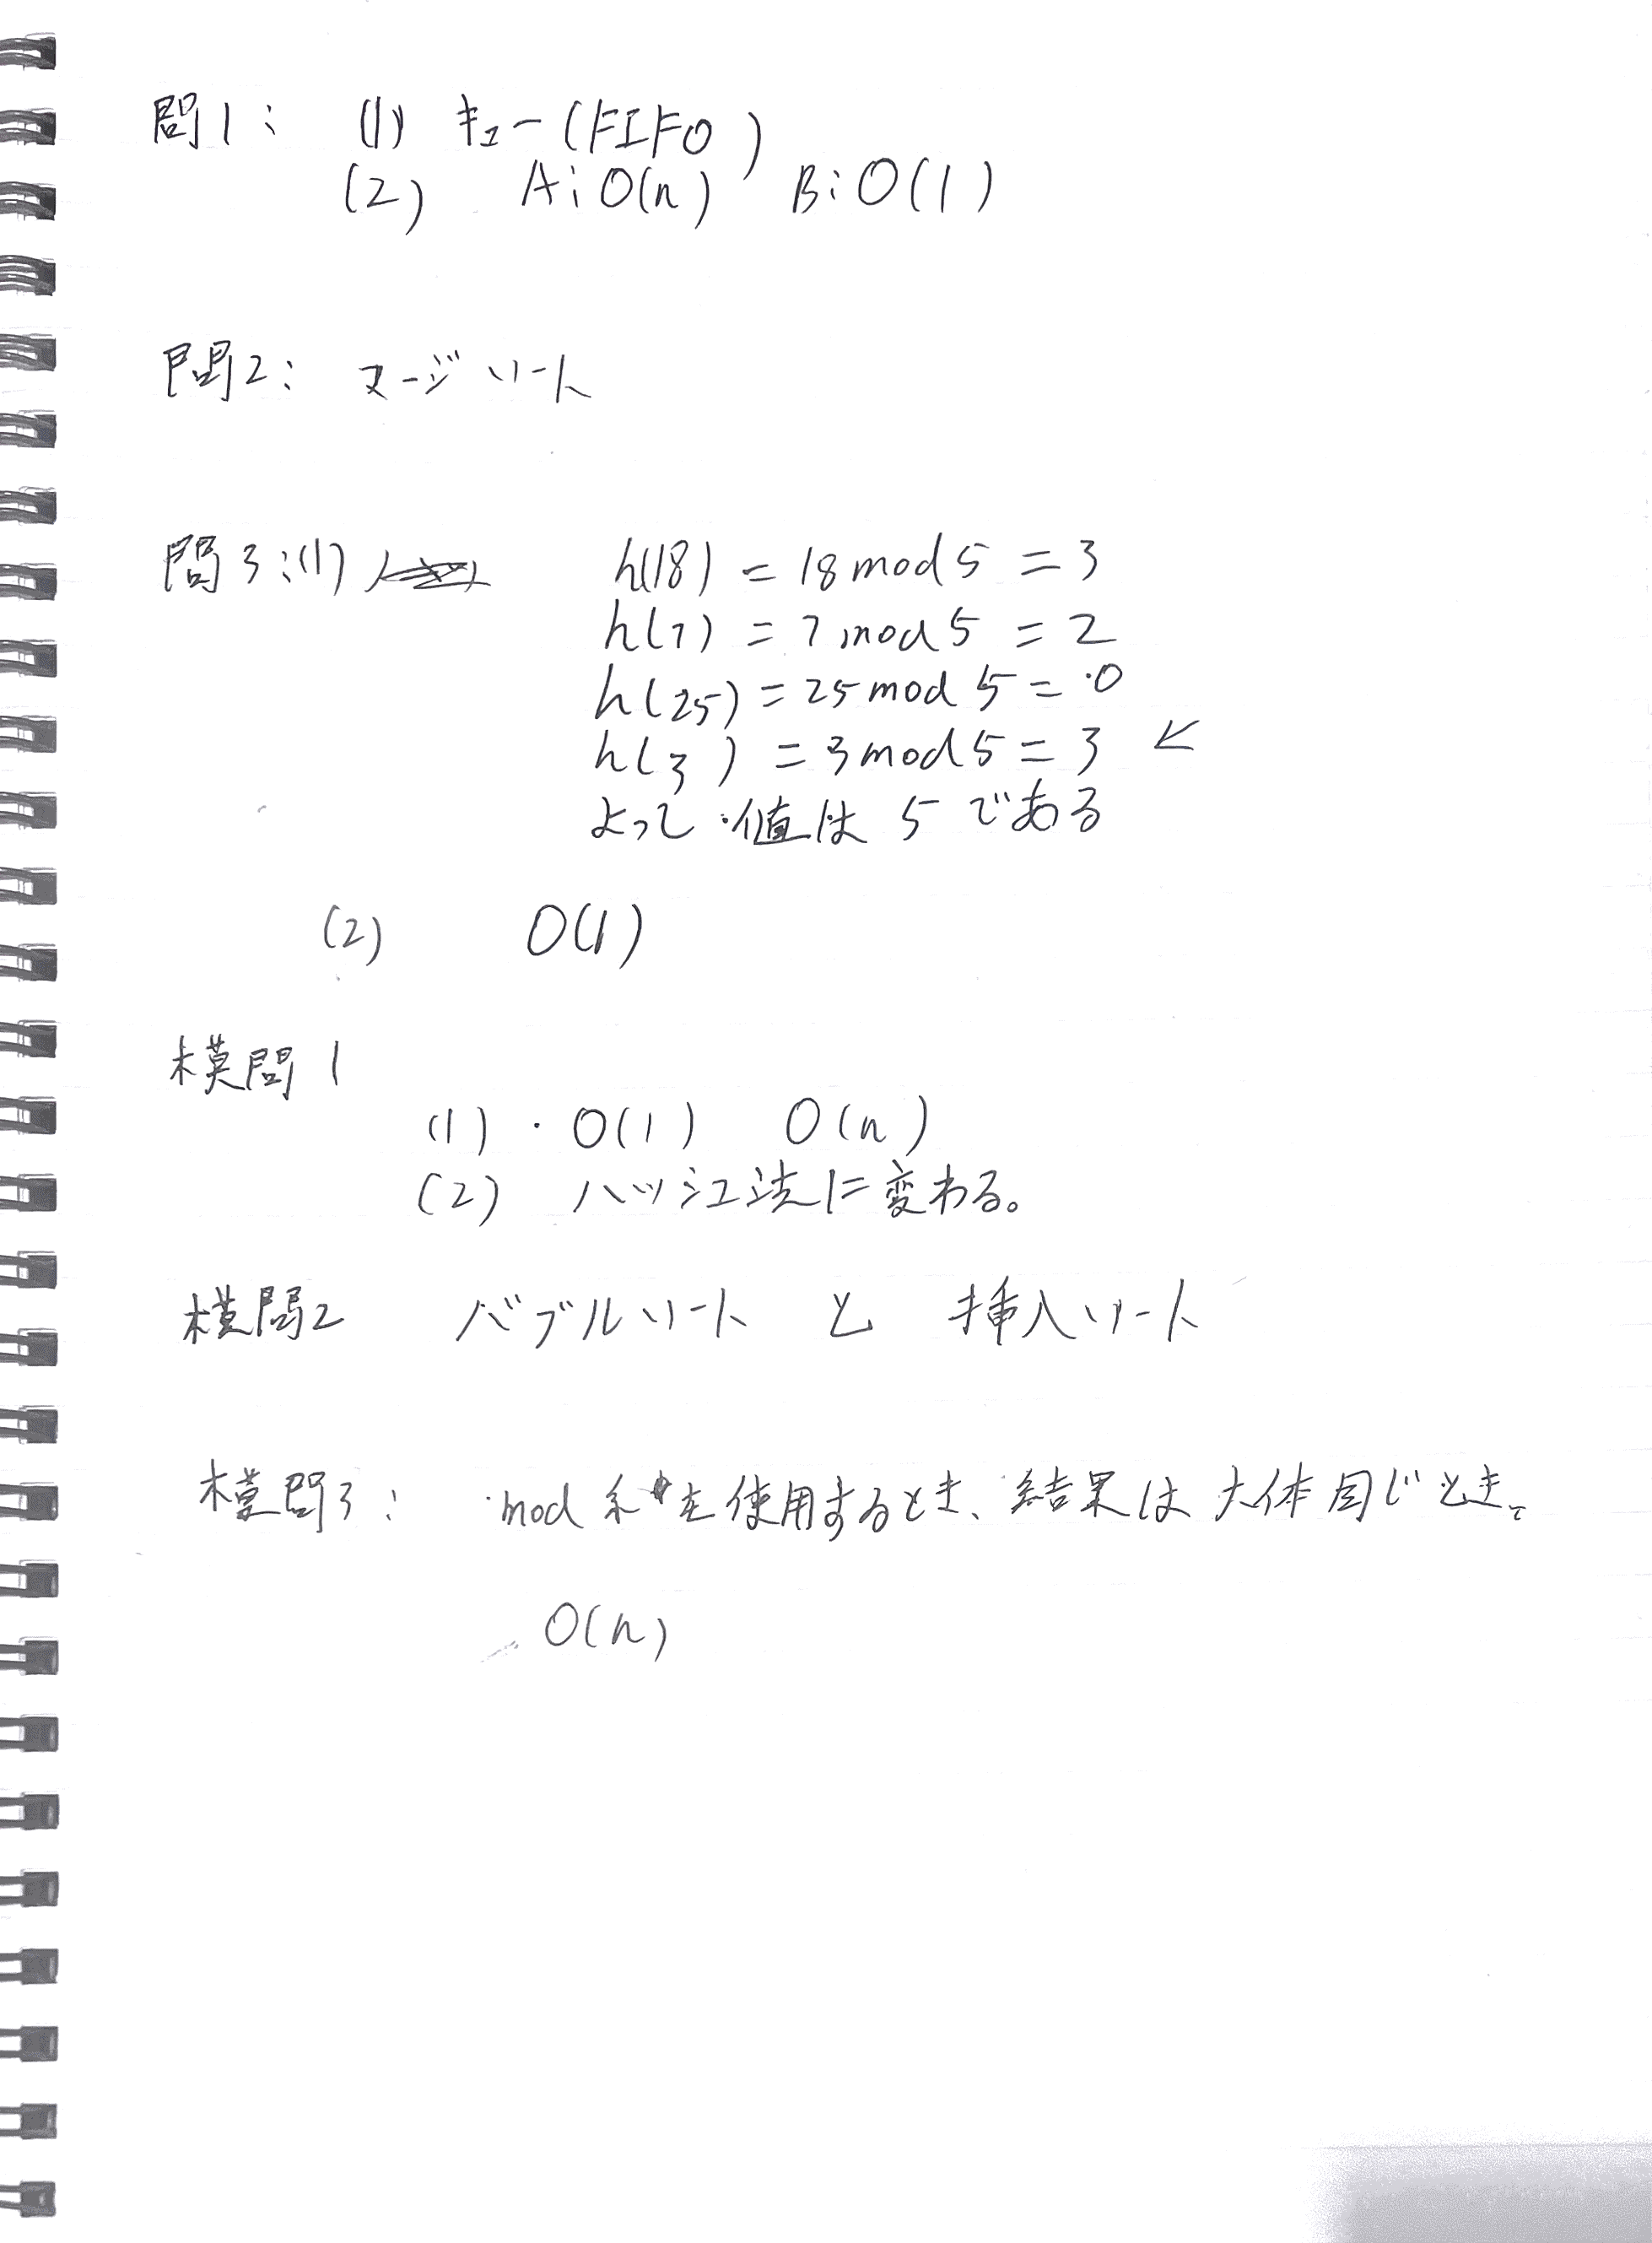 問1: (1) キュー(FIFO)
(2) A: O(n) B: O(1)
問2: マージソート
問3:(1) h(18) = 18 mod 5 = 3
h(7) = 7 mod 5 = 2
h(25) = 25 mod 5 = 0
h(3) = 3 mod 5 = 3 ←
よって値は 5 である
(2) O(1)
模問1
(1) ・O(1) O(n)
(2) ハッシュ法に変わる。
模問2 バブルソート と 挿入ソート
模問3: mod を使用するとき、結果は大体同じとき。
O(n)